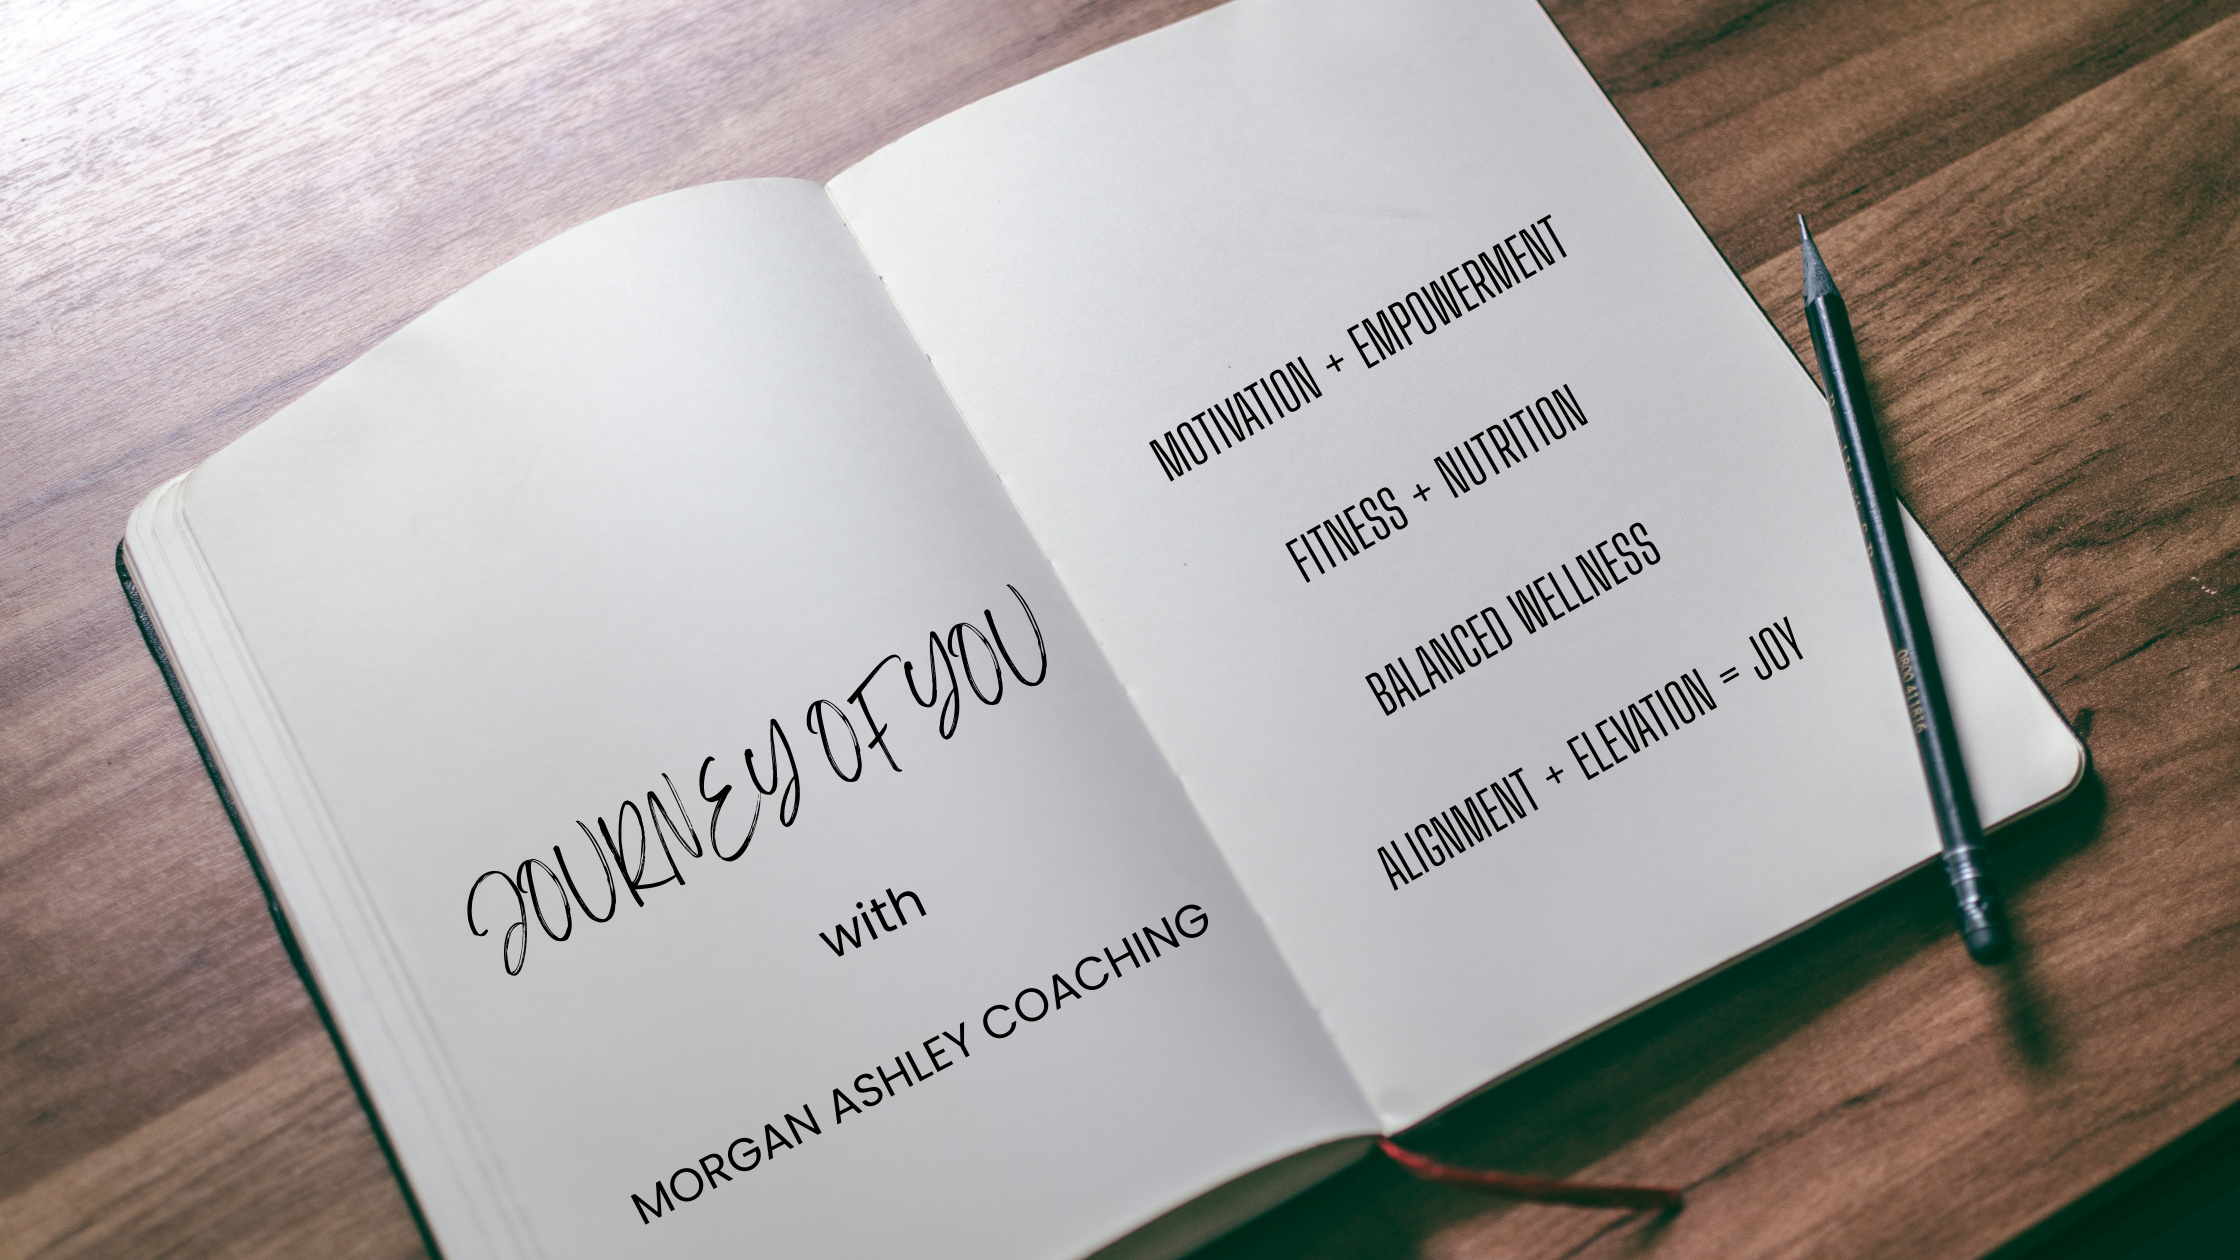 JOURNEY OF YOU
with
MORGAN ASHLEY COACHING
MOTIVATION + EMPOWERMENT
FITNESS + NUTRITION
BALANCED WELLNESS
ALIGNMENT + ELEVATION = JOY